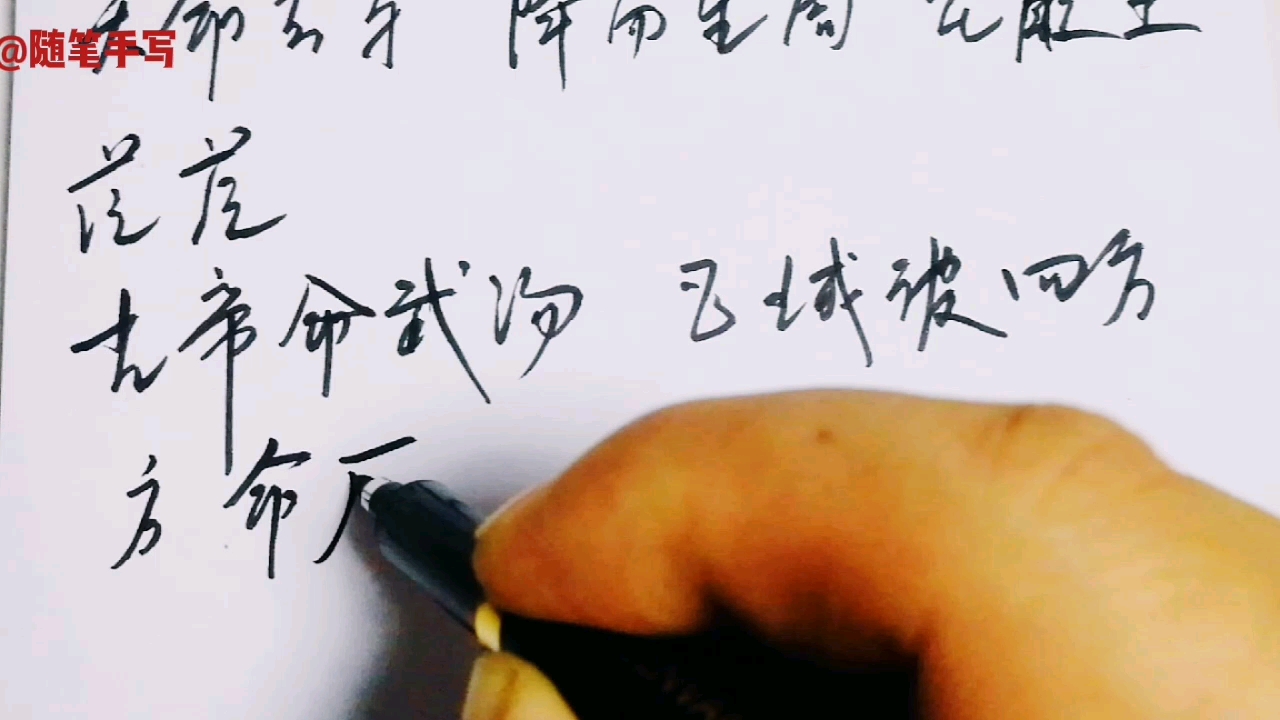 @随笔手写
天命玄鸟 降而生商 宅殷土
芒芒
古帝命武汤 正域彼四方
方命